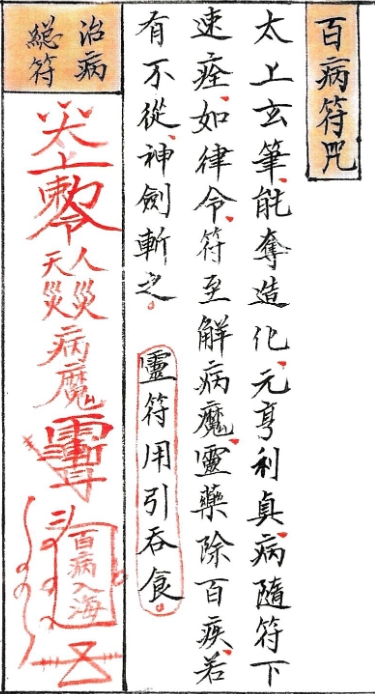 百病符咒
太上玄筆、能奪造化、元亨利真、病隨符下
速痊、如律令、符至解病魔、靈藥除百疾、若
有不從、神劍斬之。靈符用引吞食。
治病
總符
太上
敕令
人
天
災災
病魔
百病入海